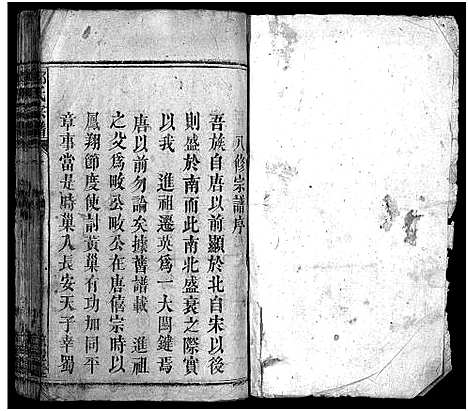 八修宗譜序
吾族自唐以前顯於北自宋以後
則盛於南而此南北盛衰之際實
以我 進祖遷英為一大關鍵焉
唐以前勿論矣據舊譜載 進祖
之父為畋公畋公在唐僖宗時以
鳳翔節度使討黃巢有功加同平
章事當是時巢入長安天子幸蜀
氏宗譜